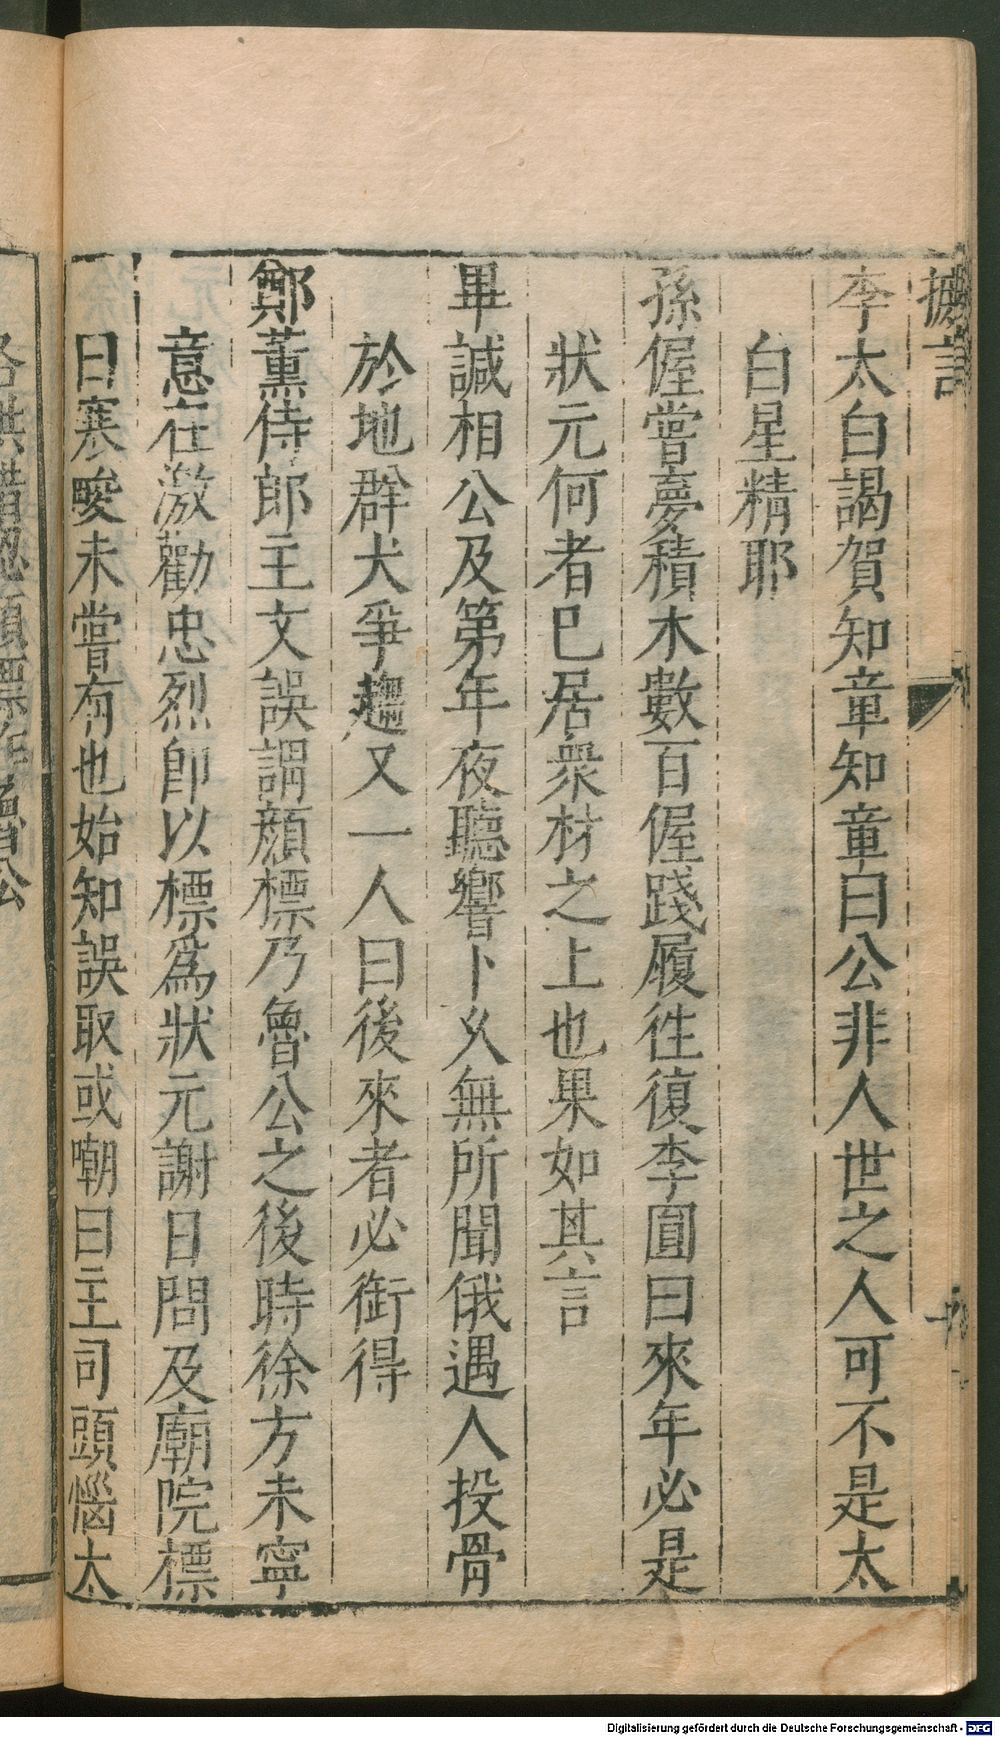 摭言
李太白謁賀知章知章曰公非人世之人可不是太
白星精耶
孫偓嘗夢積木數百偓踐履徃復李圓曰來年必是
狀元何者已居衆材之上也果如其言
畢諴相公及第年夜聽響卜乆無所聞俄遇人投骨
於地群犬爭趨又一人曰後來者必銜得
鄭薰侍郎主文誤謂顏標乃魯公之後時徐方未寧
意在激勸忠烈卽以標爲狀元謝日問及廟院標
曰寒畯未嘗有也始知誤取或嘲曰主司頭惱太
冬烘錯認顏標作魯公
Digitalisierung gefördert durch die Deutsche Forschungsgemeinschaft - DFG